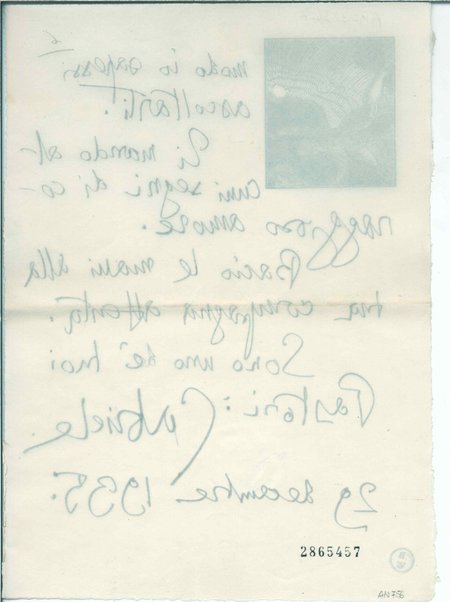 6
modo io sapessi
ascoltarti.
Ti mando al-
cuni segni di co-
raggioso amore.
Bacio le mani alla
tua compagna attenta.
Sono uno de' tuoi
Pastori: Gabriele.
29 decembre 1935.
2865457